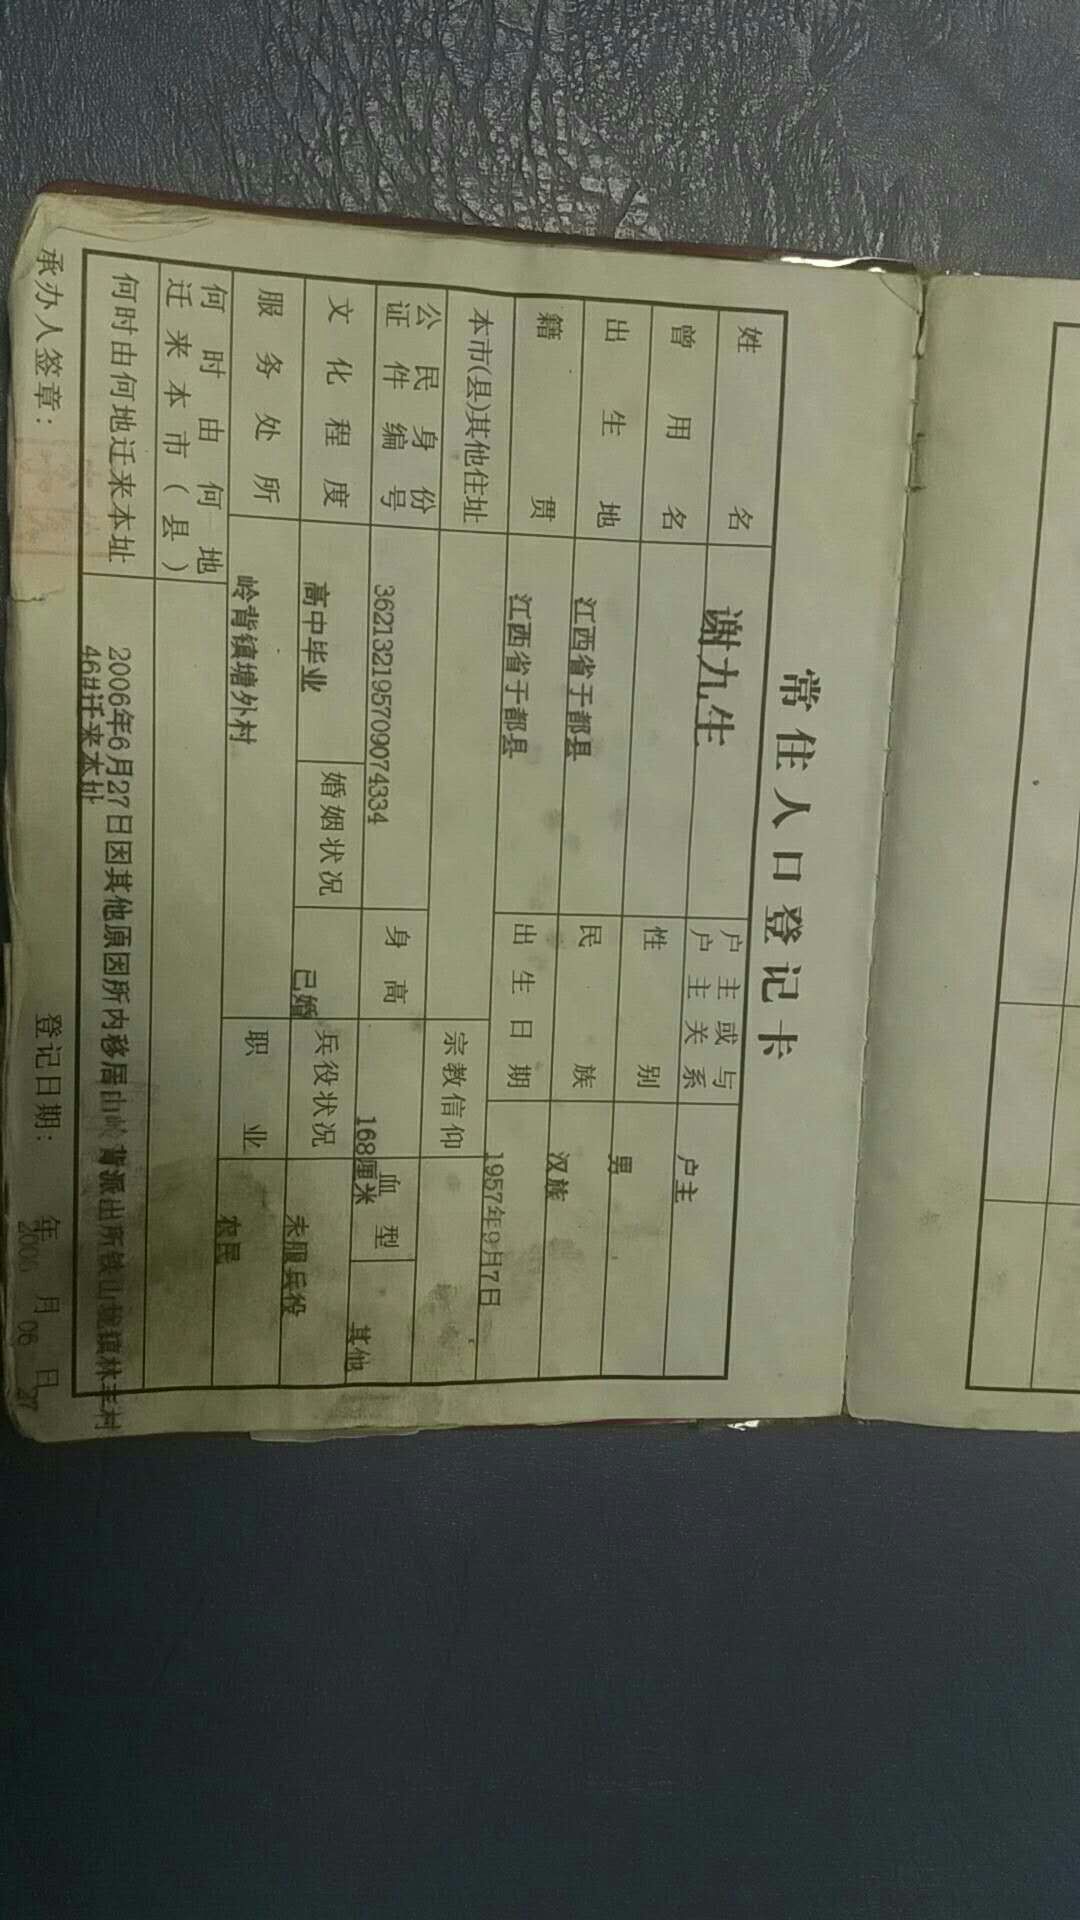 常住人口登记卡
姓名 谢九生 户主或与户主关系 户主
曾用名 性别 男
出生地 江西省于都县 民族 汉族
籍贯 江西省于都县 出生日期 1957年9月7日
本市(县)其他住址 宗教信仰
公民身份证件编号 362132195709074334 身高 168厘米 血型 其他
文化程度 高中毕业 婚姻状况 已婚 兵役状况 未服兵役
服务处所 岭背镇塘外村 职业 农民
何时由何地迁来本市(县)
何时由何地迁来本址 2006年6月27日因其他原因所内移居由岭背派出所铁山垅镇林丰村
46#迁来本址
承办人签章: 登记日期: 年 月06 日27